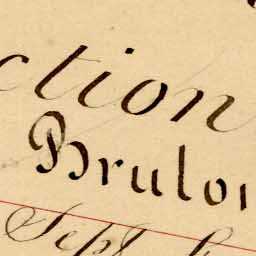 ction
Brulo
Sept